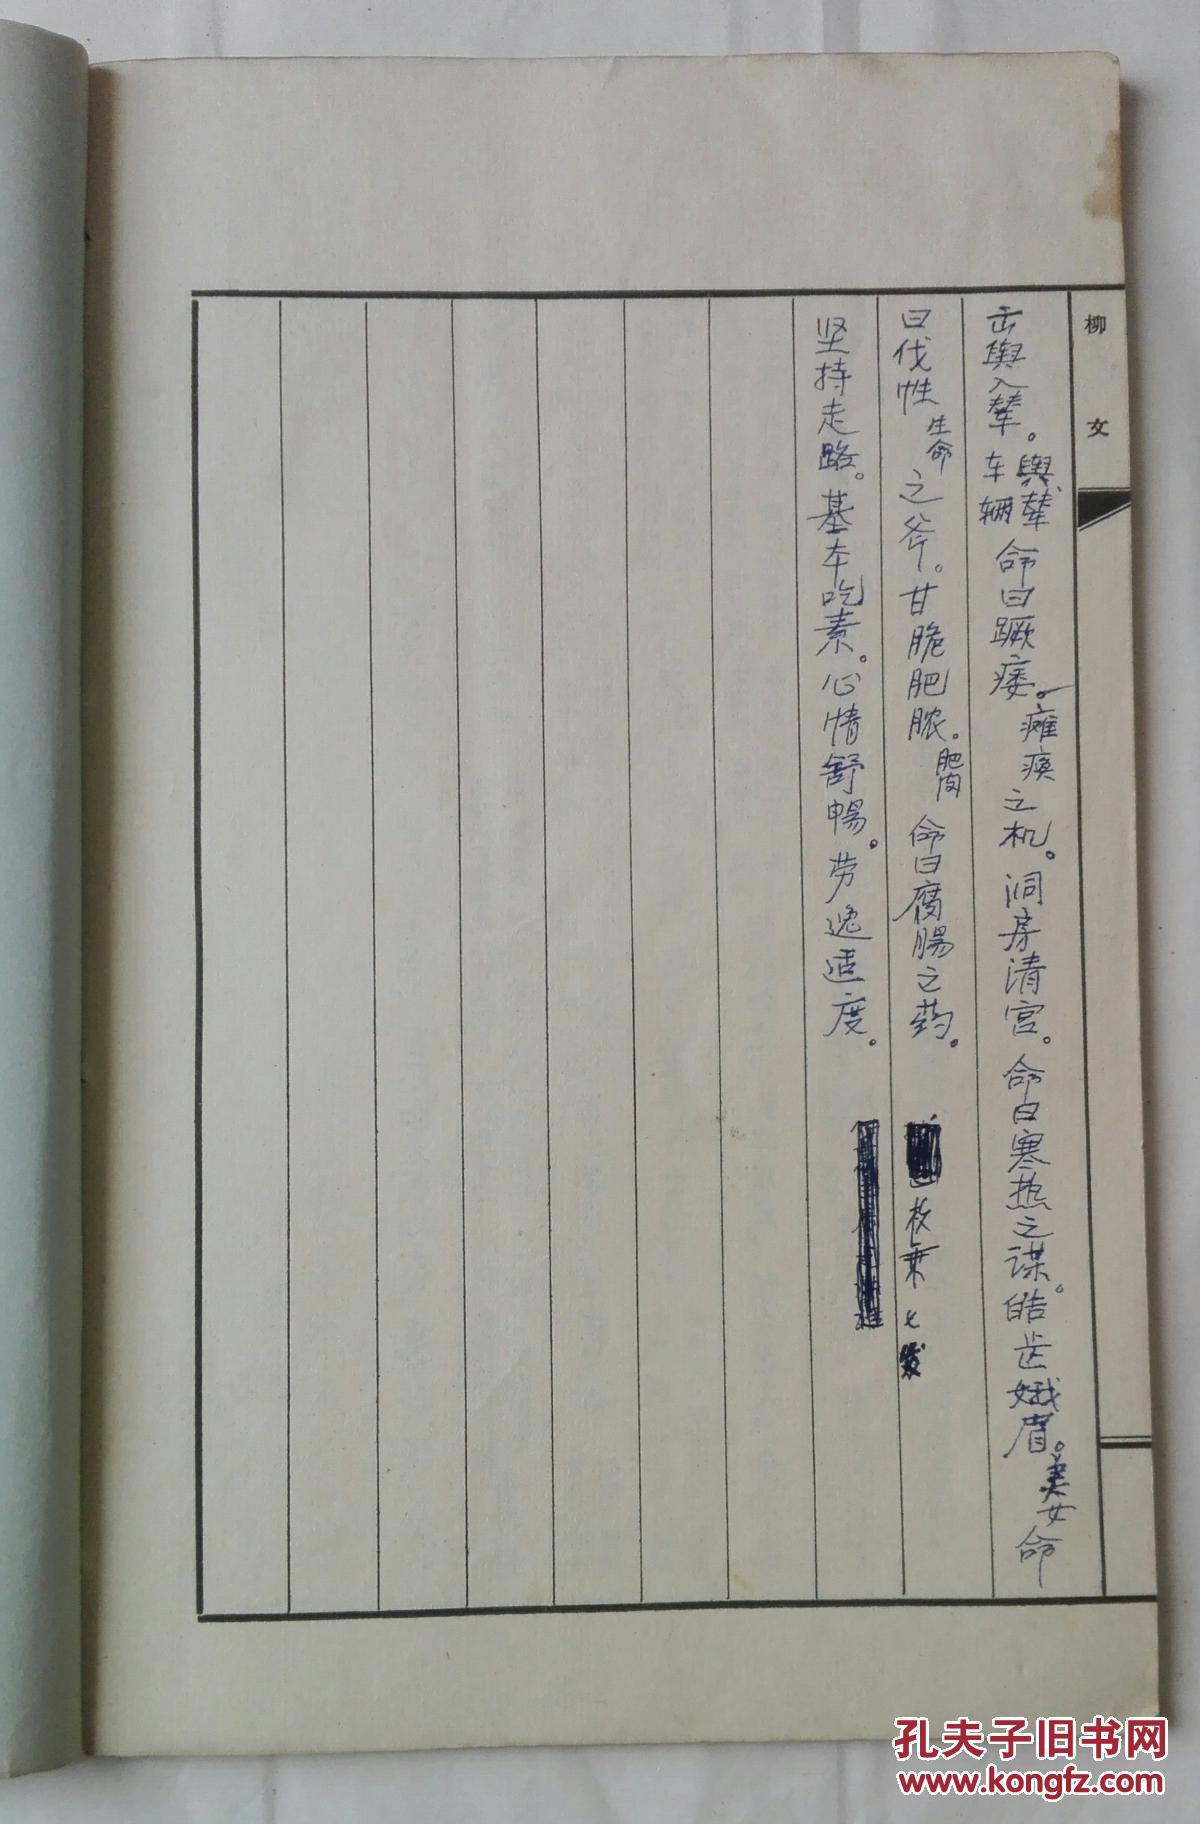 柳文
出舆入辇。舆辇车辆命曰蹶痿。瘫痪之机。洞房清宫。命曰寒热之谋。皓齿娥眉。美女命
曰伐性生命之斧。甘脆肥脓。肥肉命曰腐腸之药。枚乘七发
坚持走路。基本吃素。心情舒暢。劳逸适度。
孔夫子旧书网
www.kongfz.com